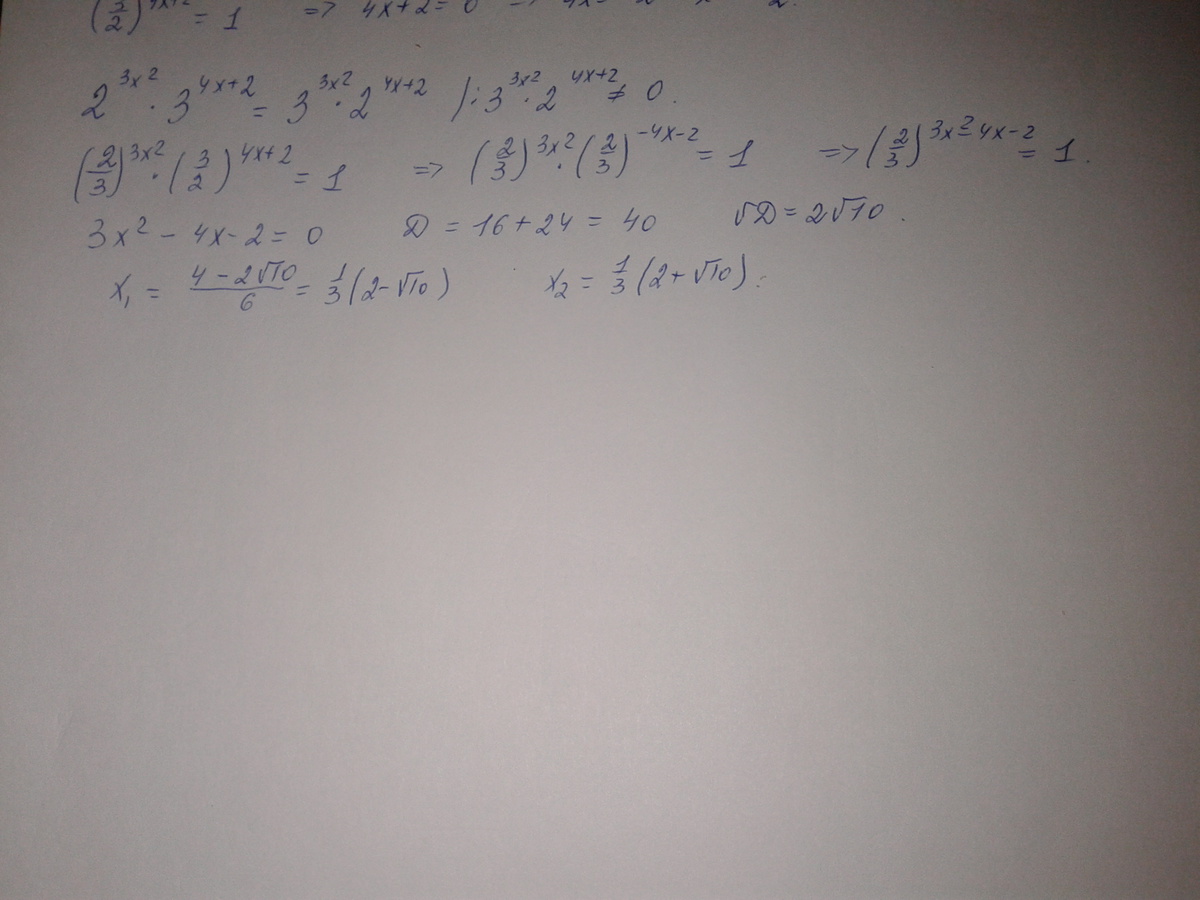 (3/2)^(4x+2) = 1 => 4x+2 = 0
2^(3x²) · 3^(4x+2) = 3^(3x²) · 2^(4x+2) |: 3^(3x²) · 2^(4x+2) ≠ 0.
(2/3)^(3x²) · (3/2)^(4x+2) = 1 => (2/3)^(3x²) · (2/3)^(-4x-2) = 1 => (2/3)^(3x²-4x-2) = 1.
3x² - 4x - 2 = 0 D = 16 + 24 = 40 √D = 2√10.
x₁ = (4 - 2√10)/6 = 1/3 (2 - √10) x₂ = 1/3 (2 + √10).